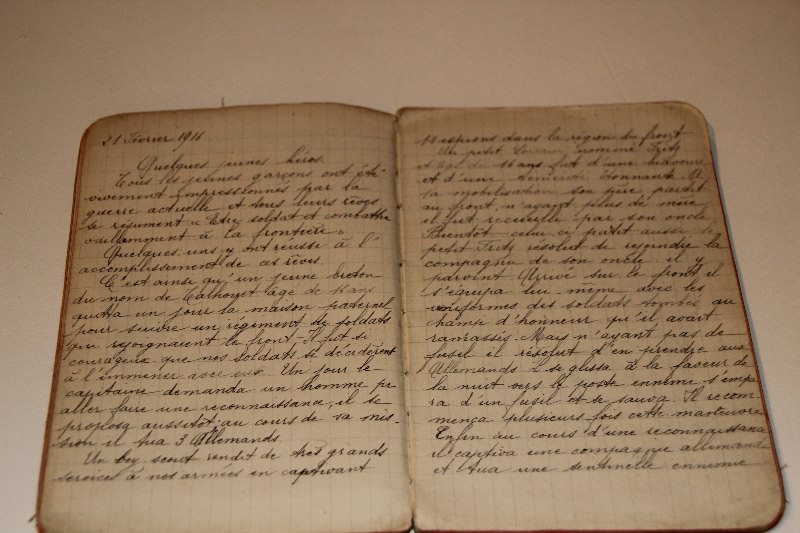 21 Février 1911
Quelques jeunes héros.
Tous les jeunes garçons ont été
vivement impressionnés par la
guerre actuelle et tous leurs rêves
se résument « Etre soldat et combattre
vaillamment à la frontière ».
Quelques uns y ont réussi à l'
accomplissement de ces rêves.
C'est ainsi qu'un jeune breton
du nom de âgé de ans
quitta un jour la maison paternel
pour suivre un régiment de soldats
qui rejoignaient le front. Il fut si
courageux que nos soldats se décidèrent
à l'emmener avec eux. Un jour le
capitaine demanda un homme pr
aller faire une reconnaissance, il se
proposa aussitôt au cours de sa mis-
sion il tua 3 Allemands.
Un boy scout rendit de très grands
services à nos armées en captivant
11 espions dans la région du front
Un petit Lorrain nommé Fritz
et âgé de 16 ans fut d'une bravoure
et d'une témérité étonnante. A
la mobilisation son père partit
au front, n'ayant plus de mère
il fut recueilli par son oncle
Bientôt celui ci partit aussi le
petit Fritz résolut de rejoindre la
compagnie de son oncle il y
parvint. Arrivé sur le front il
s'équipa lui même avec les
uniformes des soldats tombés au
champ d'honneur qu'il avait
ramassis. Mais n'ayant pas de
fusil il résolut d'en prendre aux
Allemands il se glissa à la faveur de
la nuit vers le poste ennemi s'empa
ra d'un fusil et se sauva. Il recom
mença plusieurs fois cette manœuvre
Enfin au cours d'une reconnaissance
il captiva une compagnie allemande
et tua une sentinelle ennemie